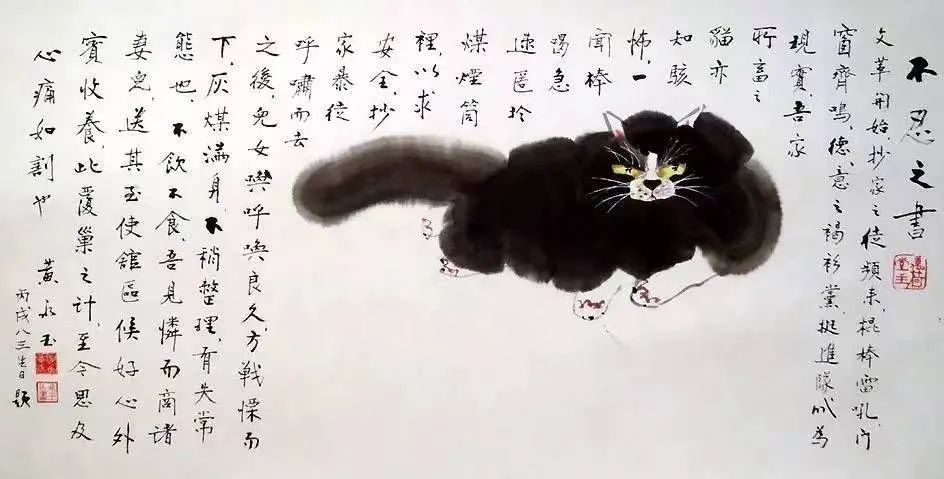 不忍之書
萬荷堂主
文革開始抄家之徒頻来,棍棒雷吼,门
窗齊鳴,德、意之褐衫黨,挺進隊㕥為
現實,吾家
所畜之
貓亦
知駭
怖,一
聞棒
喝急
速匿於
煤煙筒
裡,以求
安全,抄
家暴徒
呼嘯而去
之後,兒女噤呼喚良久,方戰慄而
下,灰煤滿身,不稍整理,有失常
態也,不飲不食,吾見憐而商諸
妻兒,送其至使館區候好心外
賓收養,此覆巢之計,至今思及
心痛如割也 黄永玉
丙戌八三生日題